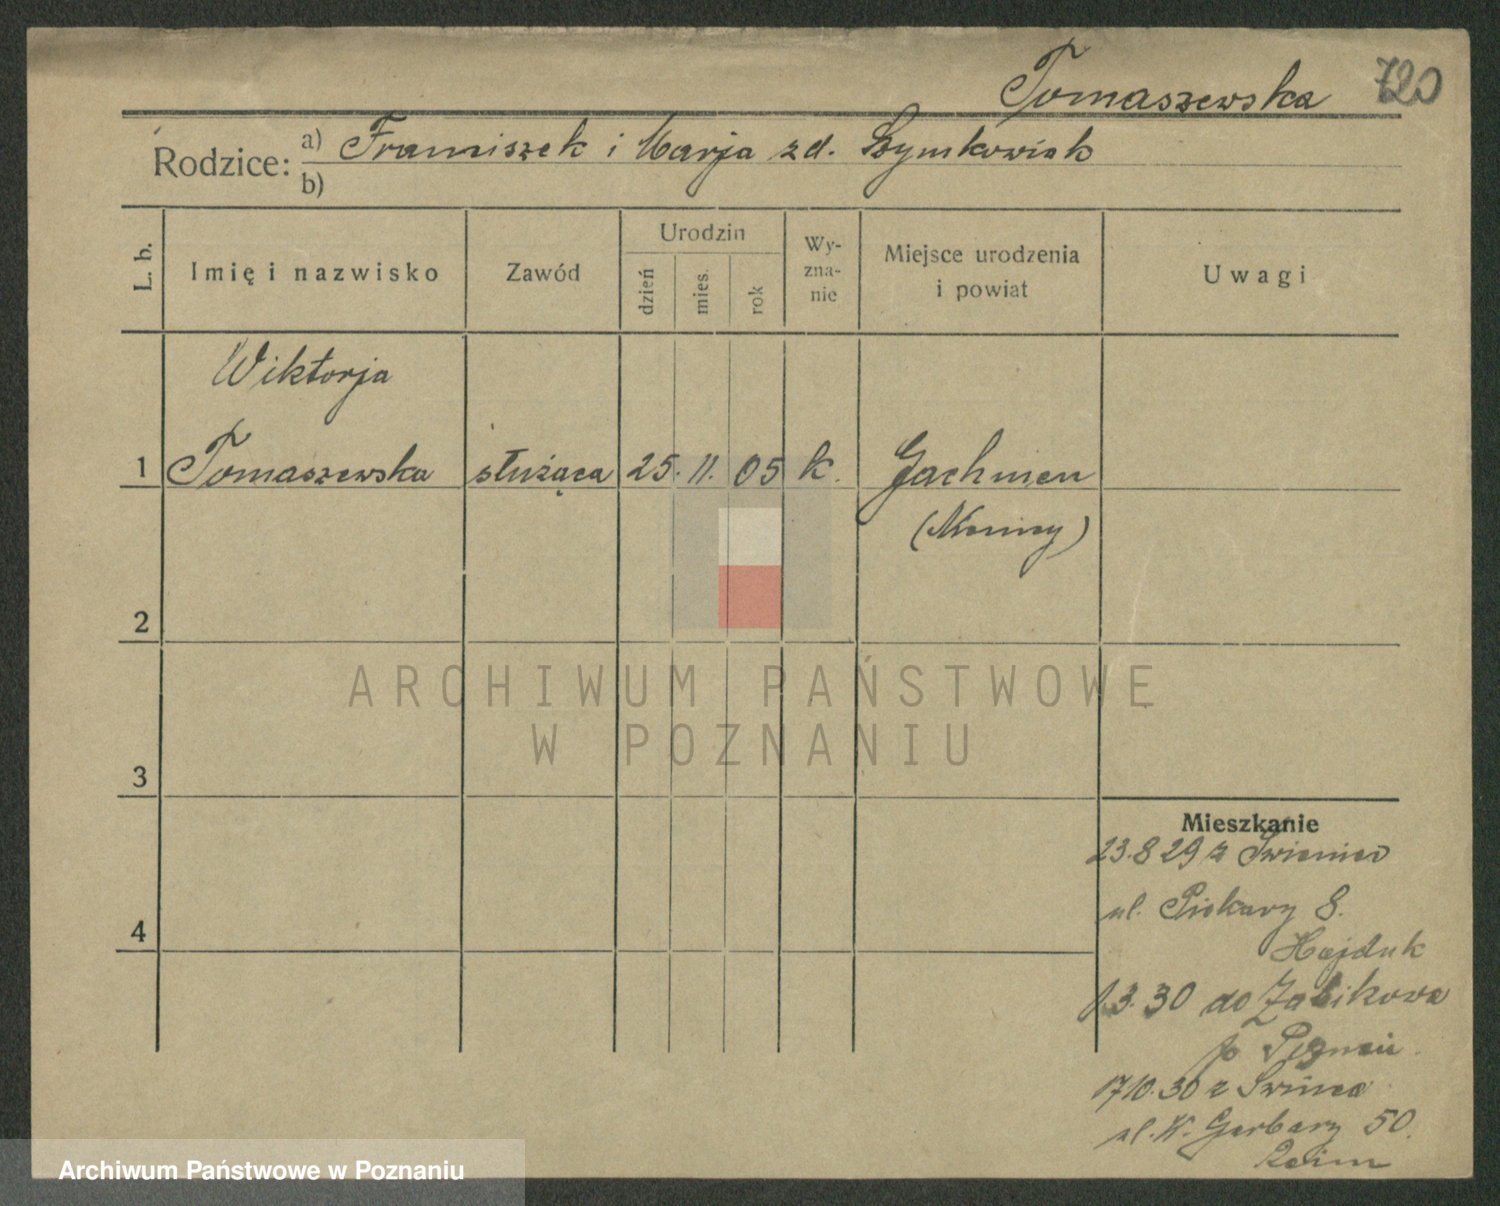 Tomaszewska 720
Rodzice: a) Franciszek i Marja zd. Szymkowiak
b)
L. b. Imię i nazwisko Zawód Urodzin dzień mies. rok Wyznanie Miejsce urodzenia i powiat Uwagi
Wiktorja
1 Tomaszewska służąca 25. 11. 05 k. Gachmen
(Niemcy)
2
ARCHIWUM PAŃSTWOWE
W POZNANIU
3
Mieszkanie
23.8 29 z
ul. Piekary 8.
4
Hajduk
1.3.30 do Żabikowa
p. Poznań
17 10.30 z
ul. W. Garbary 50.
Archiwum Państwowe w Poznaniu